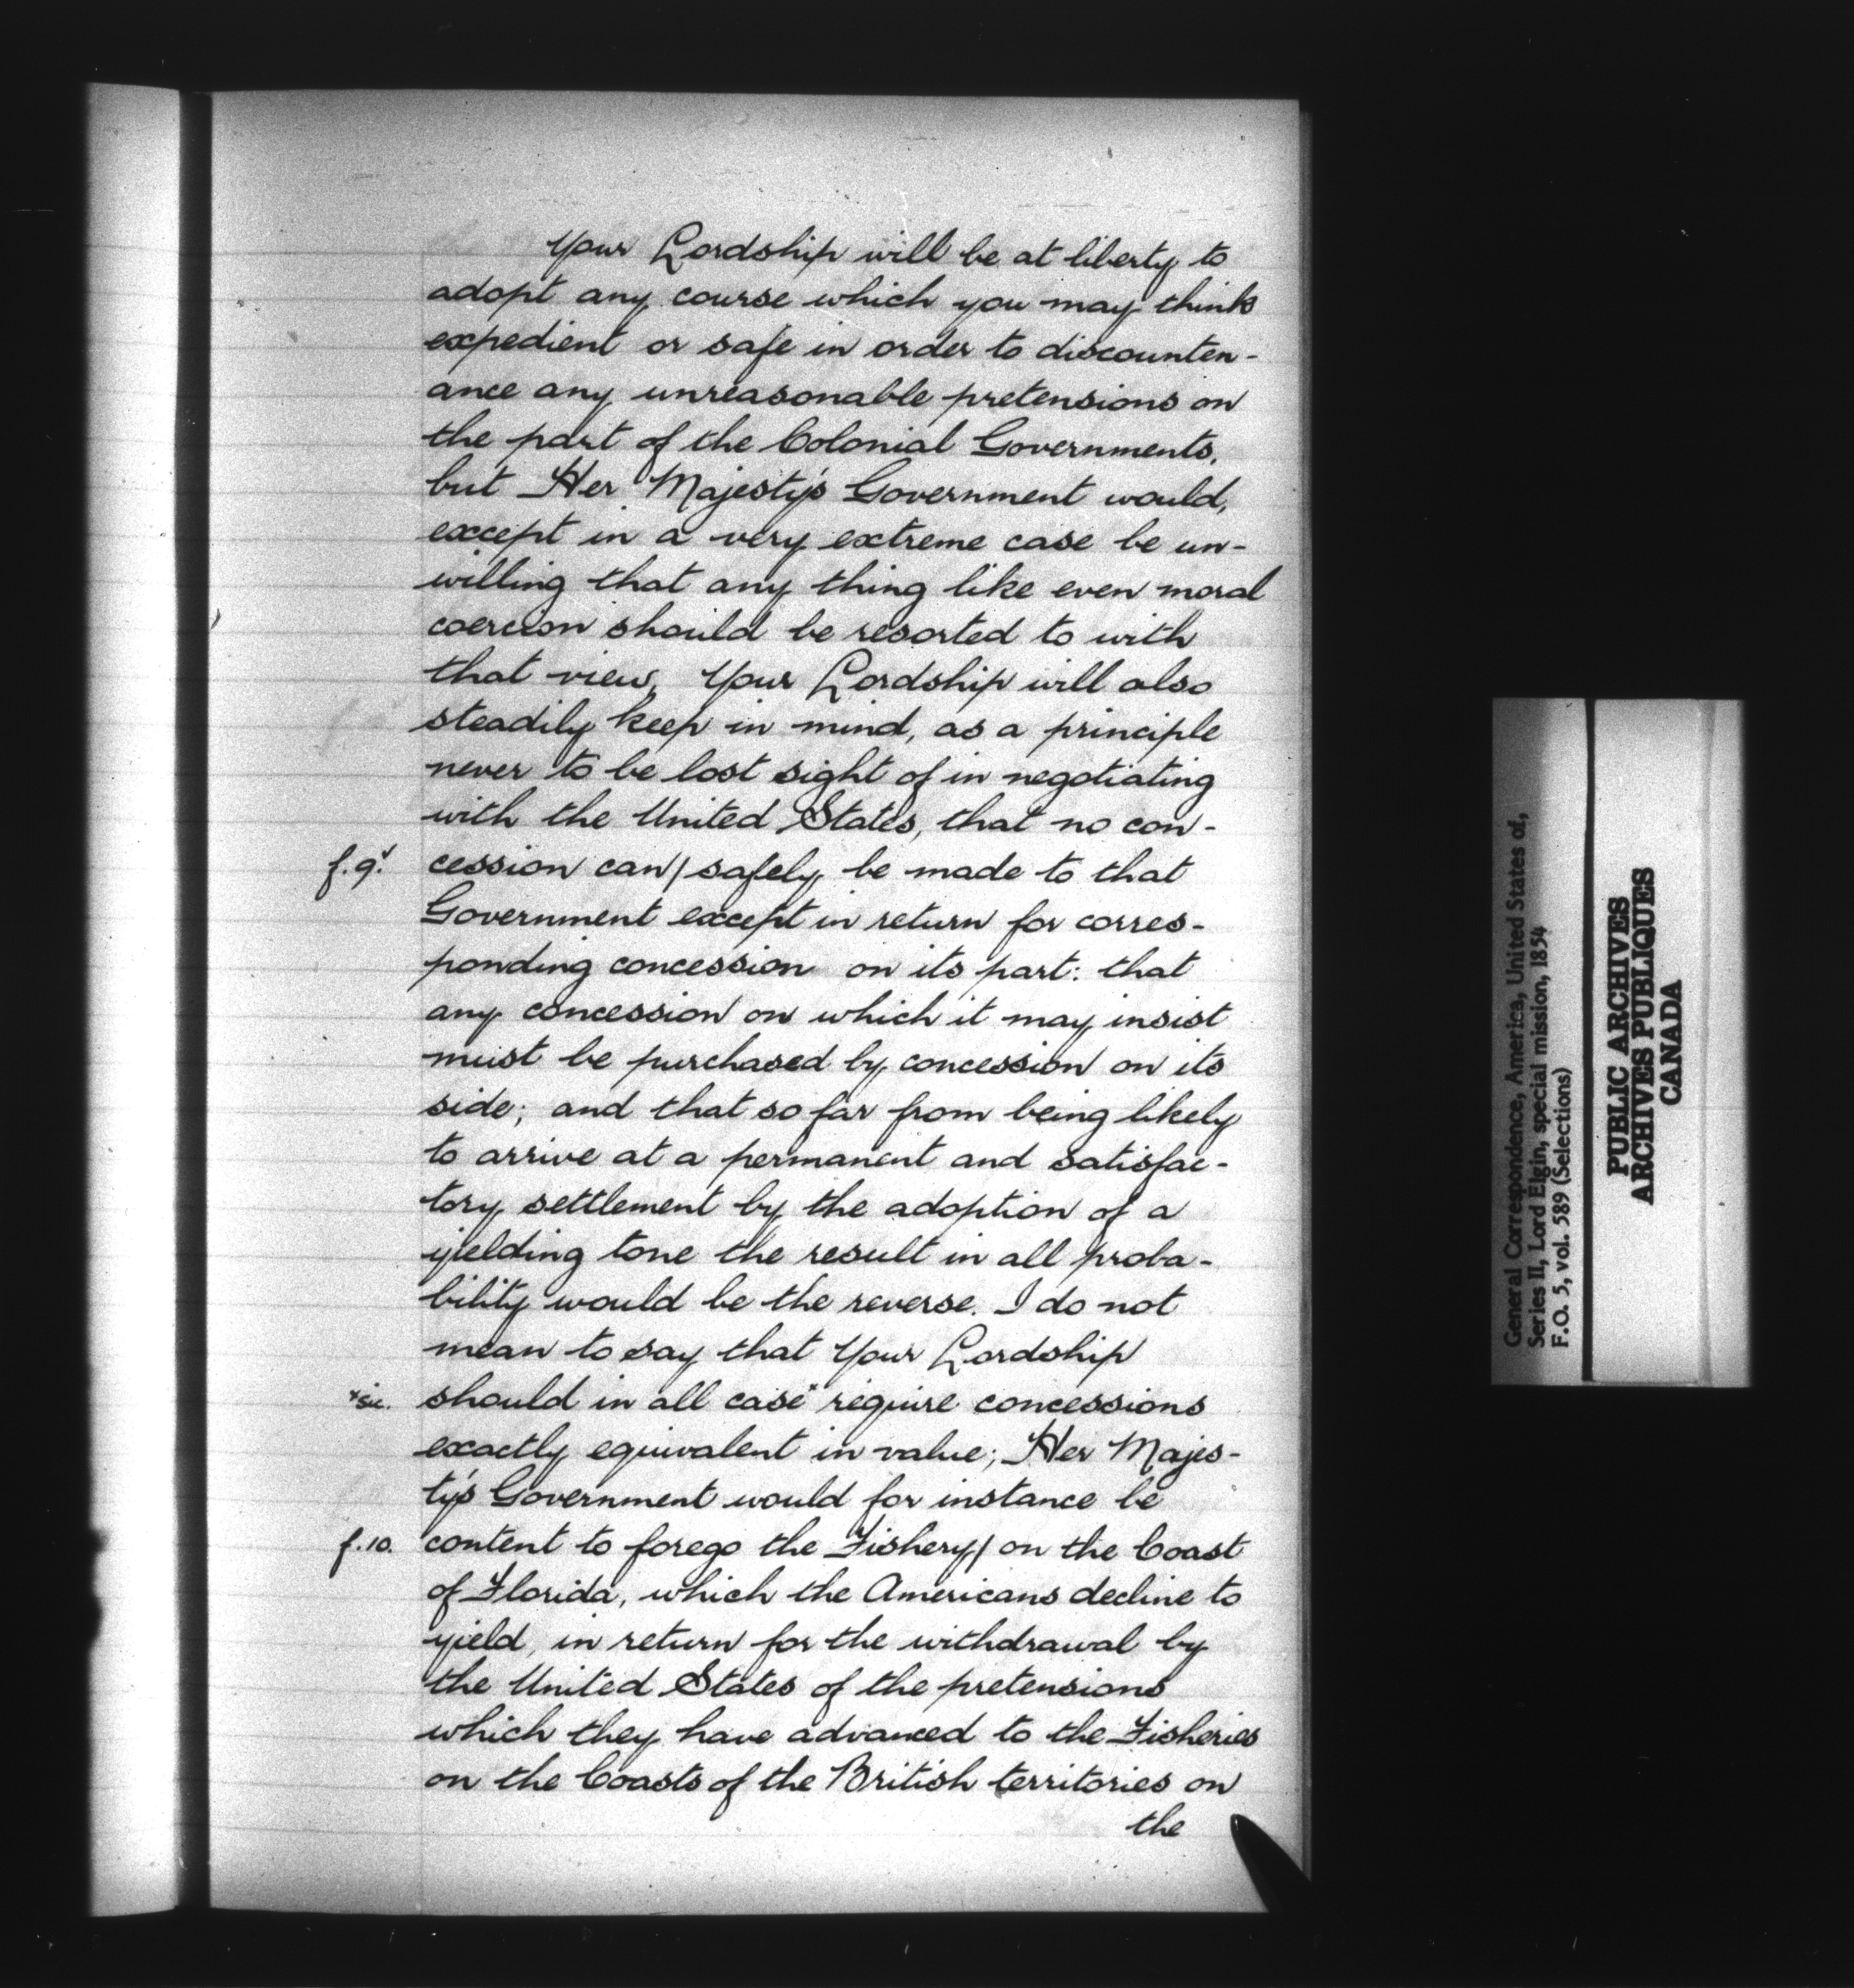 Your Lordship will be at liberty to
adopt any course which you may think
expedient or safe in order to discounten-
ance any unreasonable pretensions on
the part of the Colonial Governments,
but Her Majesty's Government would,
except in a very extreme case be un-
willing that any thing like even moral
coercion should be resorted to with
that view. Your Lordship will also
steadily keep in mind, as a principle
never to be lost sight of in negotiating
with the United States, that no con-
f.9v. cession can/safely be made to that
Government except in return for corres-
ponding concession on its part: that
any concession on which it may insist
must be purchased by concession on its
side; and that so far from being likely
to arrive at a permanent and satisfac-
tory settlement by the adoption of a
yielding tone the result in all proba-
bility would be the reverse. I do not
mean to say that Your Lordship
*sic. should in all case* require concessions
exactly equivalent in value; Her Majes-
ty's Government would for instance be
f.10. content to forego the Fishery/ on the Coast
of Florida, which the Americans decline to
yield, in return for the withdrawal by
the United States of the pretensions
which they have advanced to the Fisheries
on the Coasts of the British territories on
the
General Correspondence, America, United States of,
Series II, Lord Elgin, special mission, 1854
F.O. 5, vol. 589 (Selections)
PUBLIC ARCHIVES
ARCHIVES PUBLIQUES
CANADA